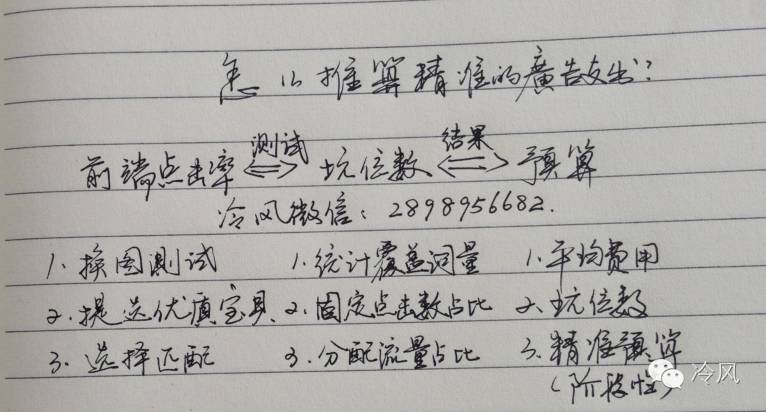 怎么推算精准的廣告支出?
前端点击率 ⇔ 测试 坑位数 ⇔ 结果 预算
冷风微信: 2898956682.
1. 换图测试 1. 统计覆盖词量 1. 平均费用
2. 提选优质宝贝. 2. 固定点击数占比 2. 坑位数
3. 选择匹配 3. 分配流量占比 3. 精准预算
(阶段性)
冷风